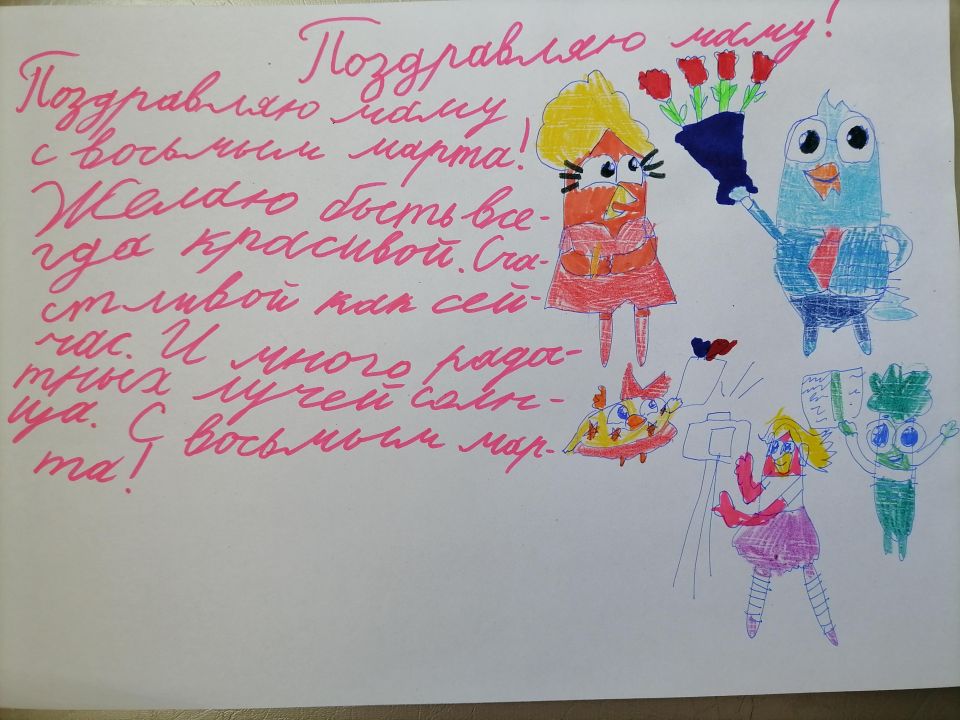 Поздравляю маму!
Поздравляю маму
с восьмым марта!
Желаю быть все-
гда красивой. Сча-
стливой как сей-
час. И много радос-
тных лучей солн-
ца. С восьмым мар-
та!